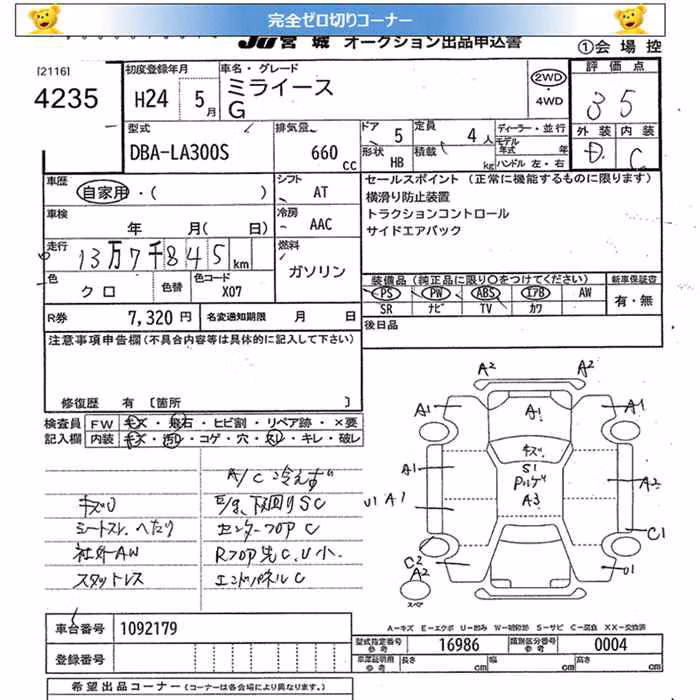 完全ゼロ切りコーナー
JU宮城 オークション出品申込書
①会場控
[2116]
4235
初度登録年月
H24 5月
車名・グレード
ミライース
G
2WD
・4WD
評価点
3 5
外装 内装
D C
型式
DBA-LA300S
排気量
660 cc
ドア 5
形状 HB
定員 4人
積載 kg
ディーラー・並行
モデル年式 年
ハンドル 左・右
車歴
自家用・( )
シフト
AT
セールスポイント (正常に機能するものに限ります)
横滑り防止装置
トラクションコントロール
サイドエアバック
車検
年 月( 日)
冷房
AAC
走行
13万7千845km
燃料
ガソリン
色
クロ
色替
色コード
X07
装備品(純正品に限り○をつけてください)
新車保証書
PS PW ABS エアB AW
SR ナビ TV カワ
有・無
R券 7,320円
名変通知期限 月 日
後日品
注意事項申告欄(不具合内容等は具体的に記入して下さい)
修復歴 有 〔箇所 〕
検査員 FW キズ・飛石・ヒビ割・リペア跡・×要
記入欄 内装 キズ・汚レ・コゲ・穴・灰し・キレ・破レ
A/C冷えず
キズU
シートスレ、へたり
センターフロアC
社外AW
スタッドレス
エンドパネルC
A2 A2
A1 A1 A1
キズ
S1
A1 A2
A3
U1 A1
C1
C2
A2
U1
スペア
A-キズ E-エクボ U-凹み W-補修跡 S-サビ C-腐食 XX-交換済
車台番号 1092179
型式指定番号 参考 16986
類別区分番号 参考 0004
登録番号
車庫証明用 参考 長さ cm 幅 cm 高さ cm
希望出品コーナー(コーナーは各会場により異なります。)